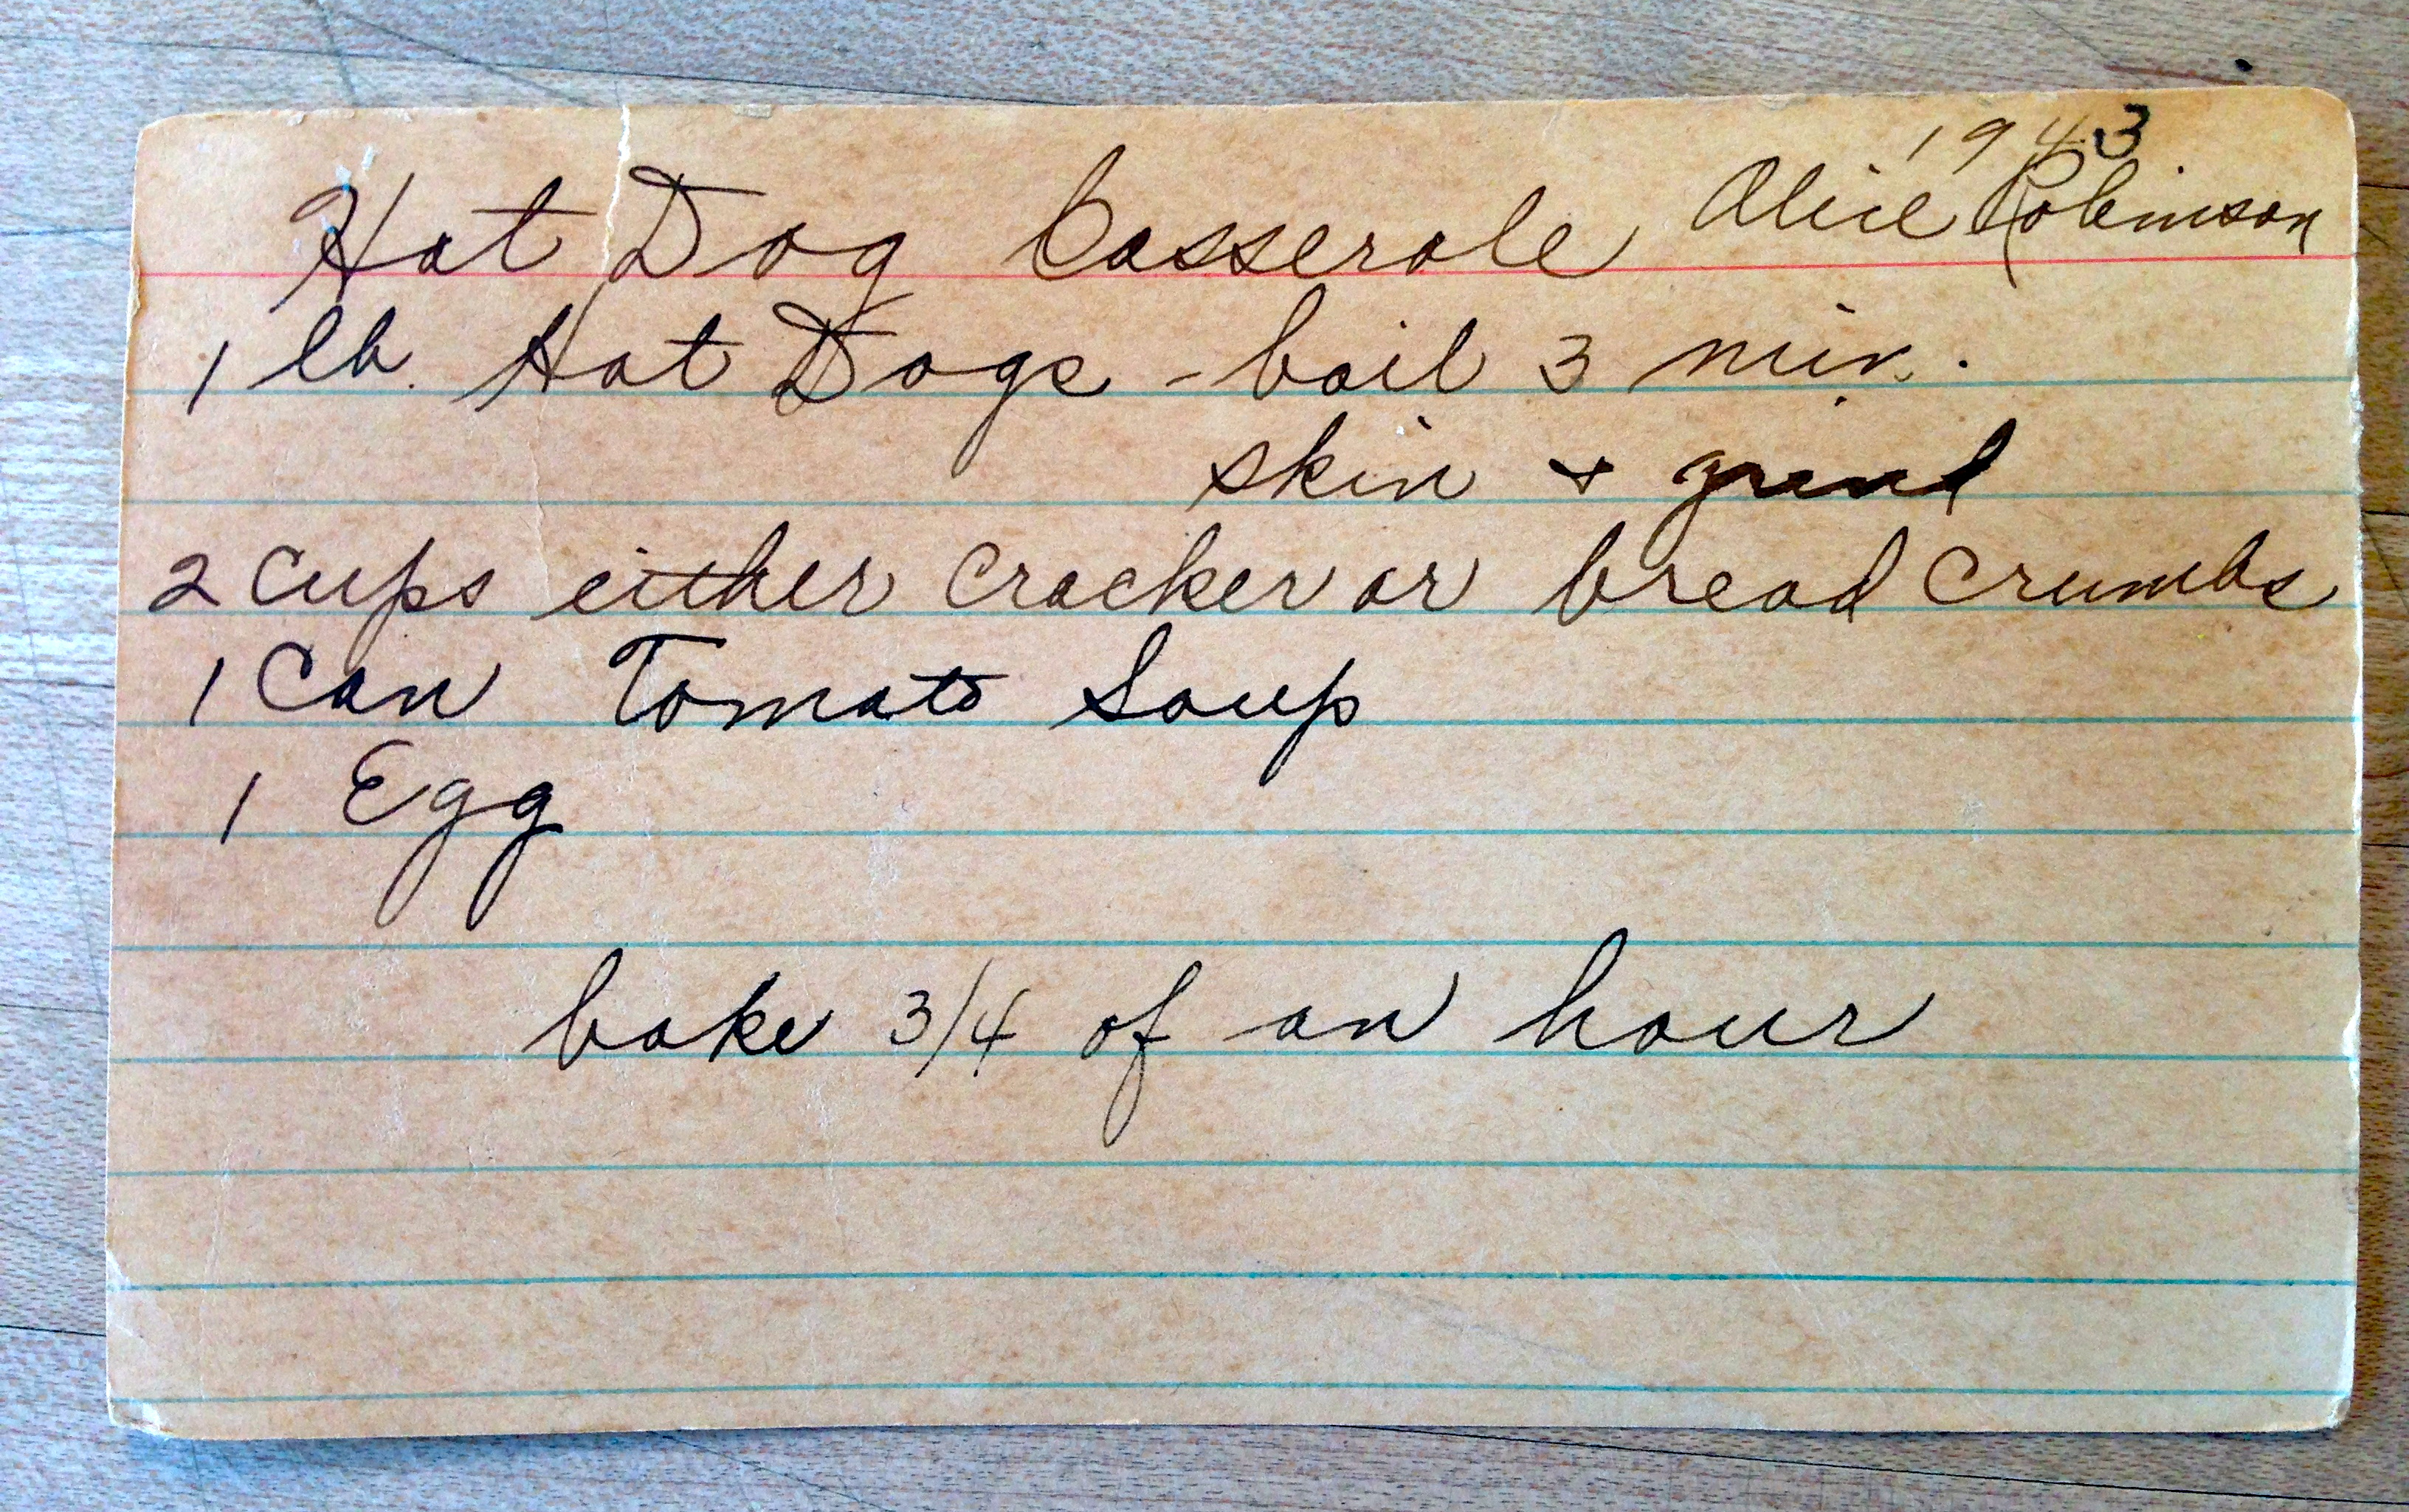 1943
Hot Dog Casserole Alice Robinson
1 lb. Hot Dogs - boil 3 min.
skin + grind
2 cups either cracker or bread crumbs
1 Can Tomato Soup
1 Egg
bake 3/4 of an hour